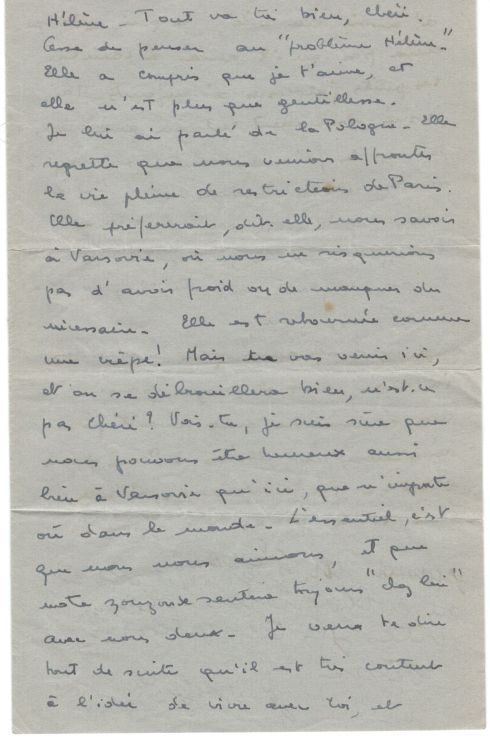 Hélène - Tout va très bien, chéri.
Cesse de penser au "problème Hélène".
Elle a compris que je t'aime, et
elle n'est plus que gentillesse.
Je lui ai parlé de la Pologne - Elle
regrette que nous venions affronter
la vie pleine de restrictions de Paris.
Elle préfèrerait, dit-elle, nous savoir
à Varsovie, où nous ne risquerions
pas d'avoir froid ou de manquer du
nécessaire - Elle est retournée comme
une crêpe! Mais tu vas venir ici,
et on se débrouillera bien, n'est-ce
pas Chéri? Vois-tu, je suis sûre que
nous pouvons être heureux aussi
bien à Varsovie qu'ici, que n'importe
où dans le monde - L'essentiel, c'est
que nous nous aimions, et que
notre sentira toujours "chez lui"
avec nous deux - Je veux te dire
tout de suite qu'il est très content
à l'idée de vivre avec toi, et